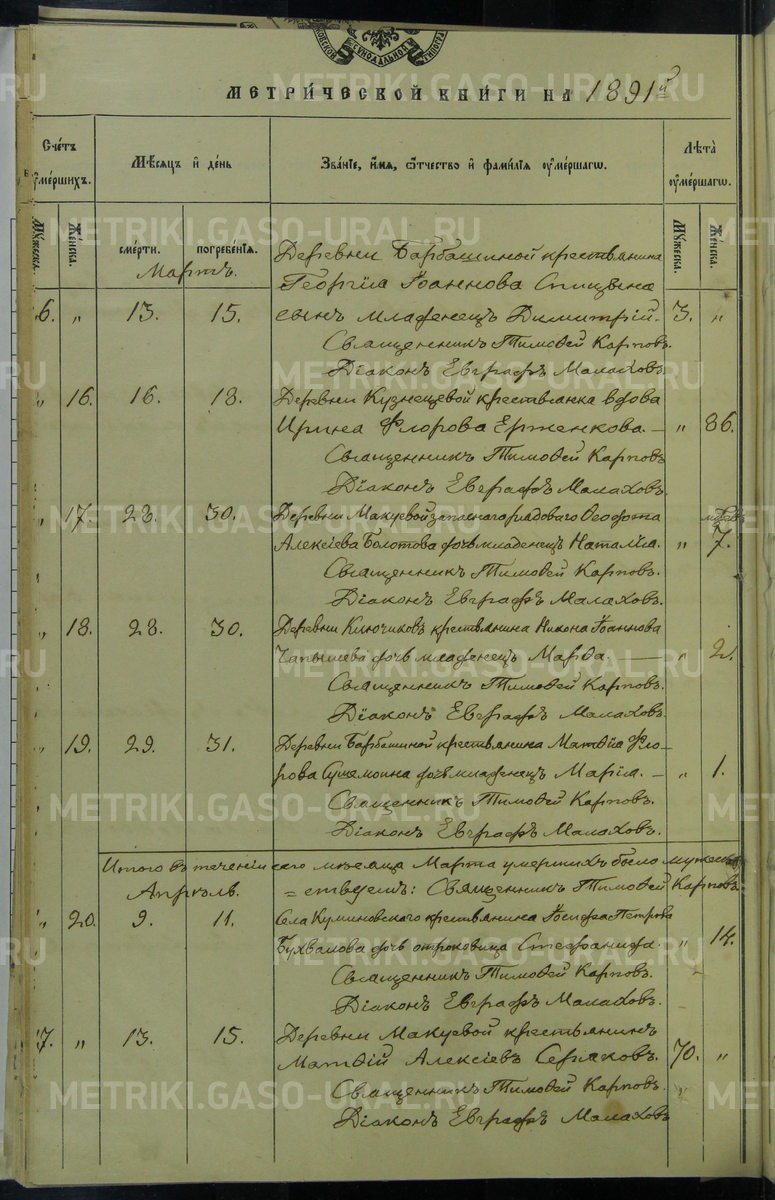 МЕТРИ́ЧЕСКОЙ КНИ́ГИ НА 1891 й
Счётъ ᲂумéршихъ.
Мѣсяцъ и день
Зва́нїе, и́мя, ѻ҆́тчество и фами́лїя ᲂумéршагѡ.
Лѣта̀ ᲂумéршагѡ.
Мꙋжеска. Же́нска. сме́рти. погребе́нїя. Мꙋжеска. Же́нска.
Мартъ.
Деревни Барбашиной крестьянина
Георгіа Іоаннова Спицына
6. „ 13. 15. сынъ младенецъ Димитрій. 3. „
Священникъ Тимоѳей Карповъ.
Діаконъ Евграфъ Малаховъ.
„ 16. 16. 18. Деревни Кузнецевой крестьянка вдова
Ирина Флорова Ерженкова. — „ 86.
Священникъ Тимоѳей Карповъ
Діаконъ Евграфъ Малаховъ.
„ 17. 28. 30. Деревни Макуевой запаснаго рядоваго Ѳеофота
Алексіева Болотова дочь младенецъ Наталіа. „ 7.
Священникъ Тимоѳей Карповъ.
Діаконъ Евграфъ Малаховъ.
„ 18. 28. 30. Деревни Ключиковъ крестьянина Никона Іоаннова
Чапышева дочь младенецъ Марѳа. — „ 2.
Священникъ Тимоѳей Карповъ.
Діаконъ Евграфъ Малаховъ.
„ 19. 29. 31. Деревни Барбашиной крестьянина Матѳіа Фло-
рова дочь младенецъ Маріа. — „ 1.
Священникъ Тимоѳей Карповъ.
Діаконъ Евграфъ Малаховъ.
Итого въ теченіи сего мѣсяца Марта умершихъ было
Апрѣль. Священникъ Тимоѳей Карповъ.
„ 20. 9. 11. Села Куминовскаго крестьянина Іосифа Петрова
Бухвалова дочь отроковица Стефанида. „ 14.
Священникъ Тимоѳей Карповъ.
Діаконъ Евграфъ Малаховъ.
7. „ 13. 15. Деревни Макуевой крестьянинъ
Матѳій Алексіевъ Серяковъ. 70. „
Священникъ Тимоѳей Карповъ.
Діаконъ Евграфъ Малаховъ
METRIKI.GASO-URAL.RU